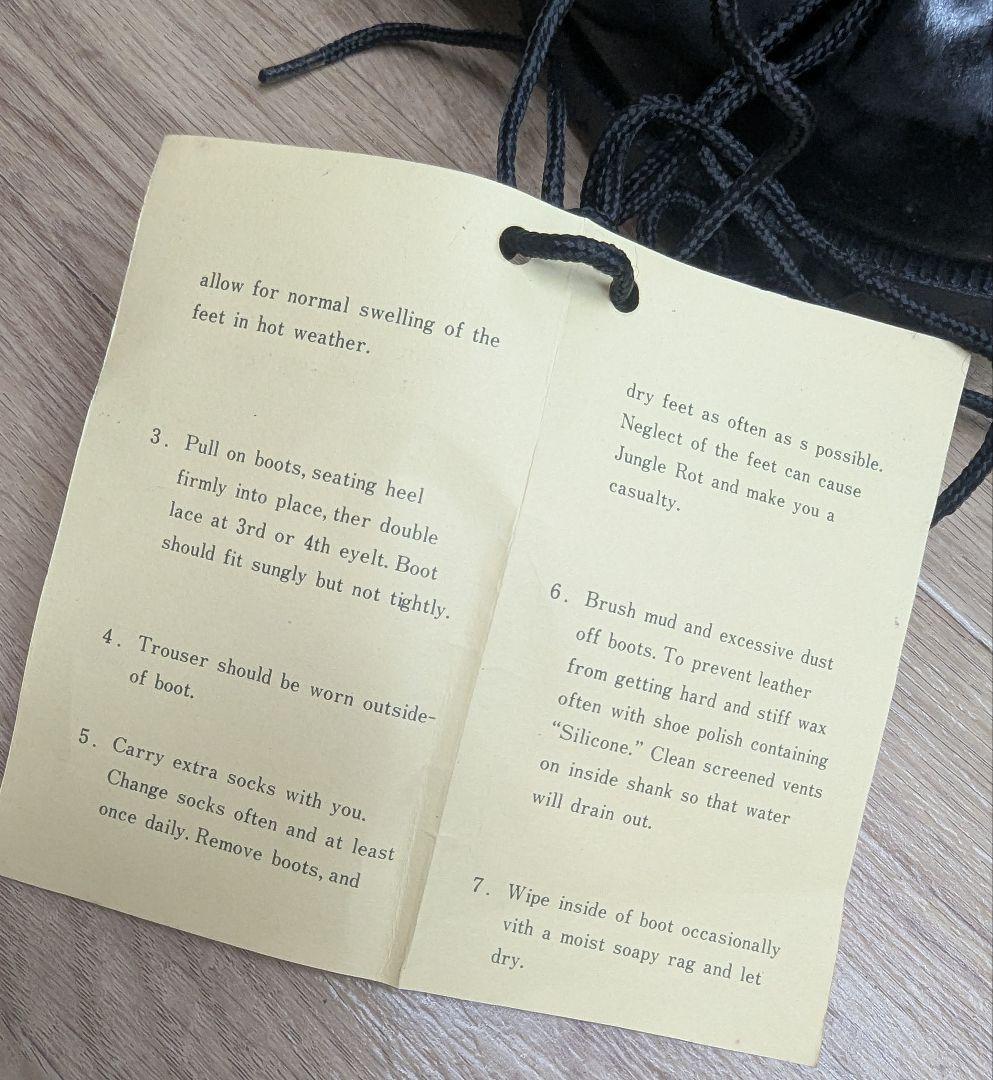 allow for normal swelling of the
feet in hot weather.
3. Pull on boots, seating heel
firmly into place, ther double
lace at 3rd or 4th eyelt. Boot
should fit sungly but not tightly.
4. Trouser should be worn outside-
of boot.
5. Carry extra socks with you.
Change socks often and at least
once daily. Remove boots, and
dry feet as often as s possible.
Neglect of the feet can cause
Jungle Rot and make you a
casualty.
6. Brush mud and excessive dust
off boots. To prevent leather
from getting hard and stiff wax
often with shoe polish containing
“Silicone.” Clean screened vents
on inside shank so that water
will drain out.
7. Wipe inside of boot occasionally
vith a moist soapy rag and let
dry.